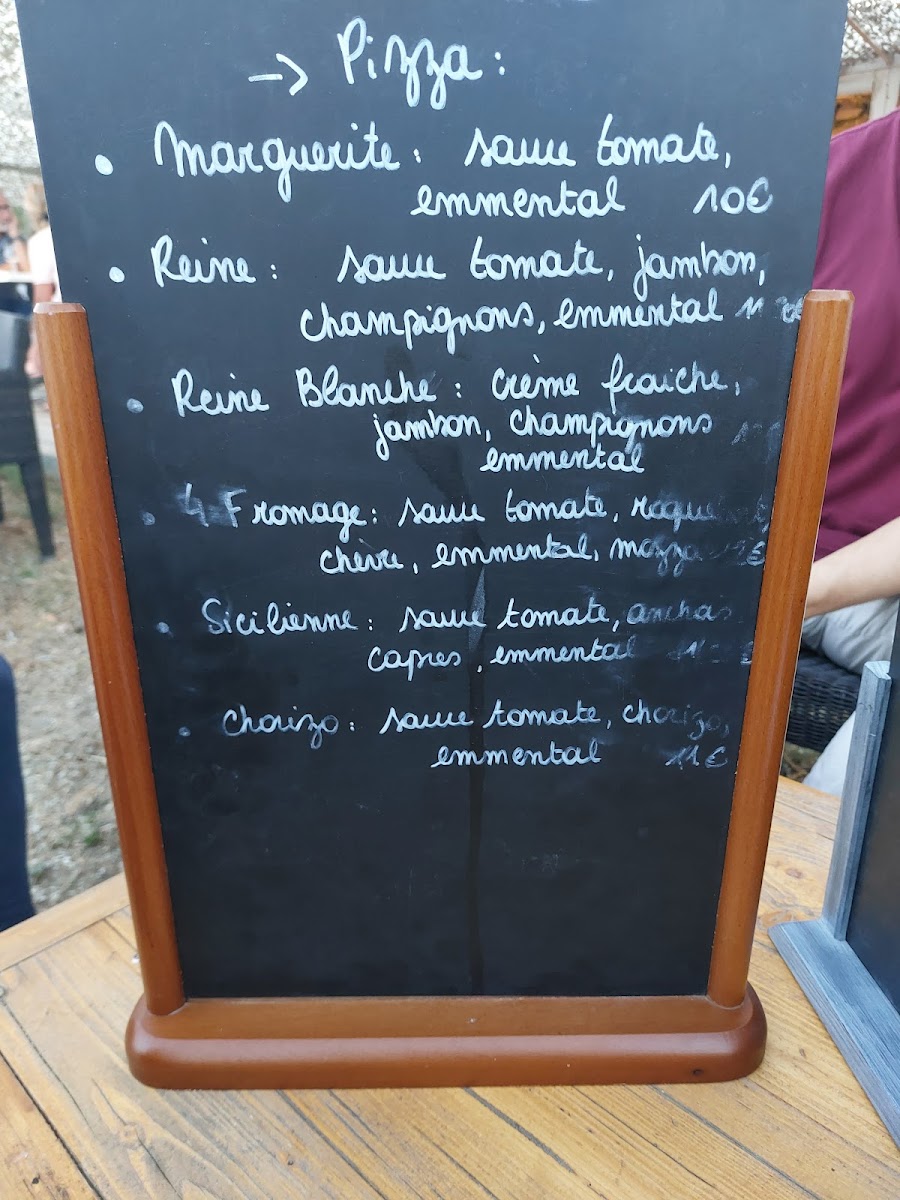 → Pizza :
• Marguerite : sauce tomate,
emmental 10€
• Reine : sauce tomate, jambon,
champignons, emmental
• Reine Blanche : crème fraiche,
jambon, champignons
emmental
• 4 Fromage : sauce tomate,
chèvre, emmental, mozza
• Sicilienne : sauce tomate, anchois
capres, emmental
• Chorizo : sauce tomate, chorizo,
emmental 11€